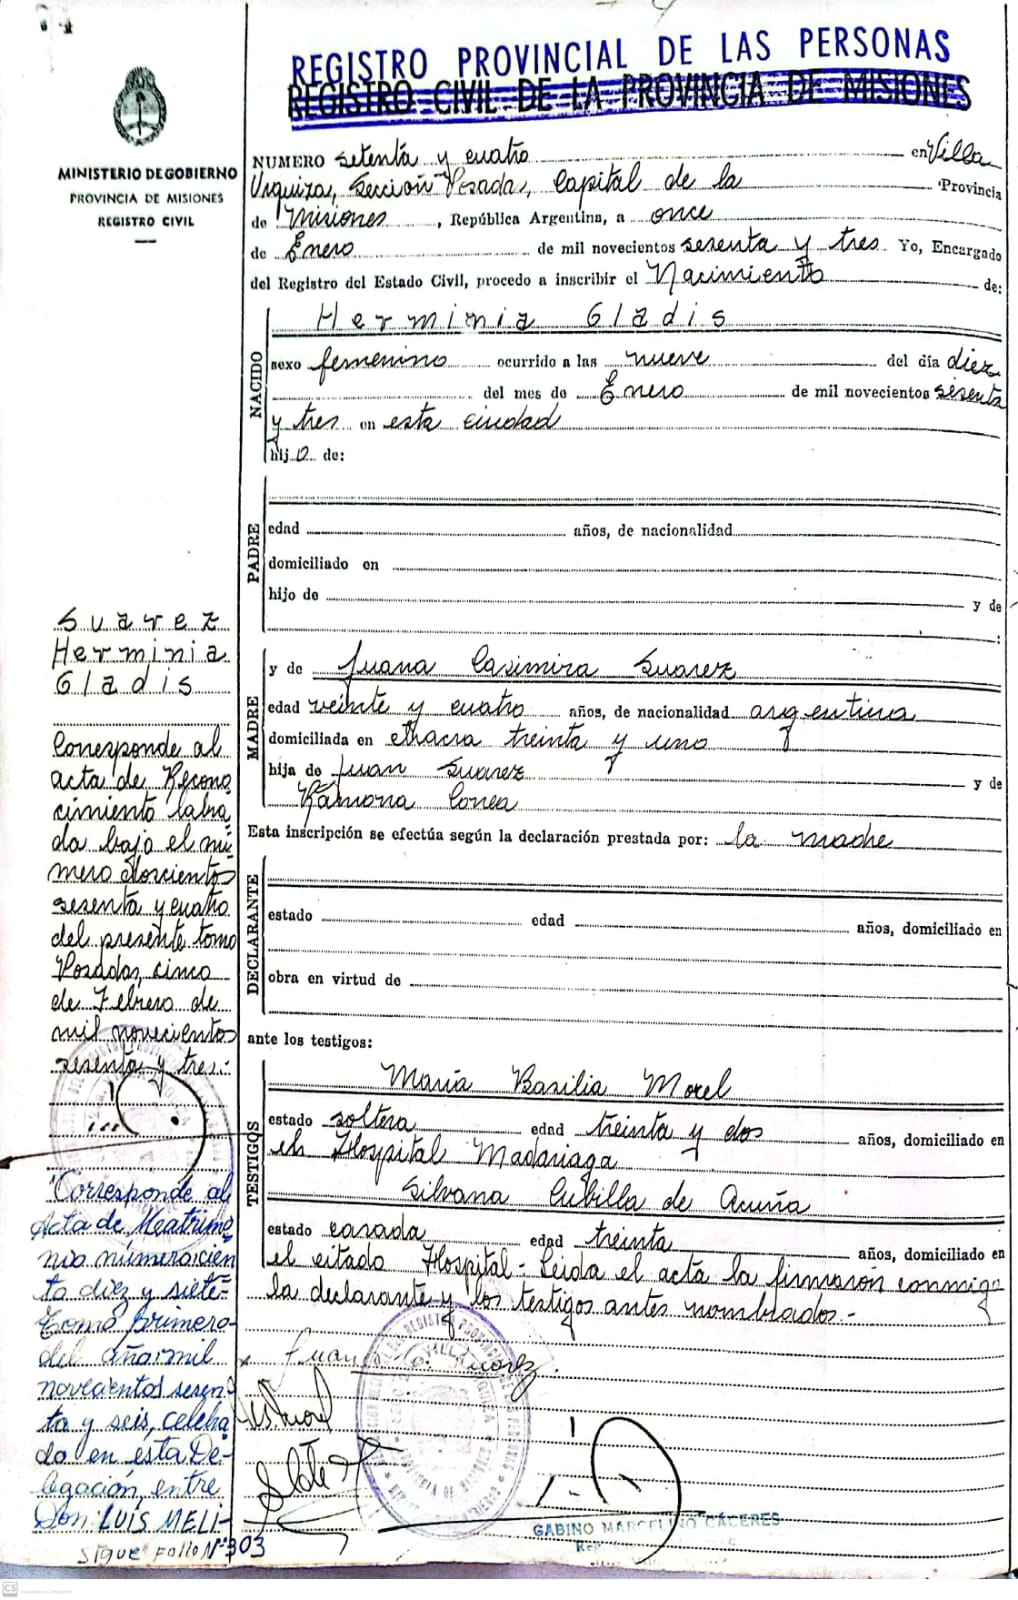 REGISTRO PROVINCIAL DE LAS PERSONAS
REGISTRO CIVIL DE LA PROVINCIA DE MISIONES
MINISTERIO DE GOBIERNO
PROVINCIA DE MISIONES
REGISTRO CIVIL
NUMERO setenta y cuatro en Villa
Urquiza, Sección Posadas, Capital de la Provincia
de Misiones, República Argentina, a once
de Enero de mil novecientos sesenta y tres Yo, Encargado
del Registro del Estado Civil, procedo a inscribir el Nacimiento de:
NACIDO
Herminia Gladis
sexo femenino ocurrido a las nueve del día diez
del mes de Enero de mil novecientos sesenta
y tres en esta ciudad
hijo de:
PADRE
edad años, de nacionalidad
domiciliado en
hijo de y de
:
MADRE
y de Juana Casimira Suarez
edad veinte y cuatro años, de nacionalidad argentina
domiciliada en chacra treinta y uno
hija de Juan Suarez y de
Ramona Correa
Esta inscripción se efectúa según la declaración prestada por: la madre
DECLARANTE
estado edad años, domiciliado en
obra en virtud de
ante los testigos:
TESTIGOS
María Basilia Morel
estado soltera edad treinta y dos años, domiciliado en
el Hospital Madariaga
Silvana Cubilla de Acuña
estado casada edad treinta años, domiciliado en
el citado Hospital - Leida el acta la firmaron conmigo
la declarante y los testigos antes nombrados.-
Juana C. Suarez
GABINO MARCELINO CÁCERES
Suarez
Herminia
Gladis
Corresponde al
acta de Recono
cimiento labra
da bajo el nú-
mero doscientos
sesenta y cuatro
del presente tomo
Posadas, cinco
de Febrero de
mil novecientos
sesenta y tres.-
Corresponde al
Acta de Matrimo-
nio número cien
to diez y siete-
Tomo primero-
del año mil
novecientos sesen-
ta y seis, celebra
do en esta De-
legación, entre
Don LUIS MELI-
SIGUE FOLIO Nº 303
CS